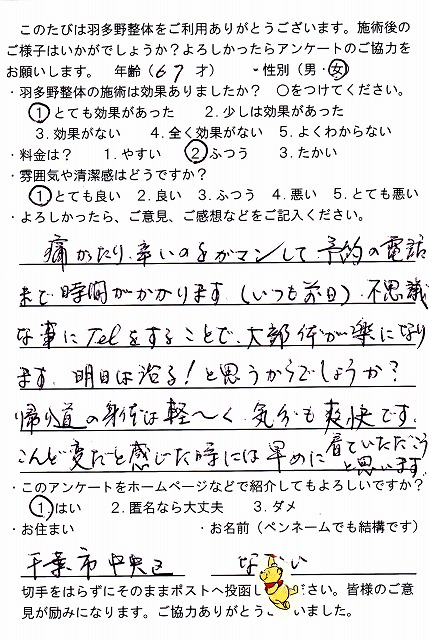 このたびは羽多野整体をご利用ありがとうございます。施術後の
ご様子はいかがでしょうか？よろしかったらアンケートのご協力を
お願いします。 年齢（67才） ・性別（男・女）
・羽多野整体の施術は効果ありましたか？ ○をつけてください。
1 とても効果があった 2. 少しは効果があった
3. 効果がない 4. 全く効果がない 5. よくわからない
・料金は？ 1. やすい 2 ふつう 3. たかい
・雰囲気や清潔感はどうですか？
1 とても良い 2. 良い 3. ふつう 4. 悪い 5. とても悪い
・よろしかったら、ご意見、ご感想などをご記入ください。
痛かったり、辛いのをガマンして、予約の電話
まで時間がかかります。（いつも前日）、不思議
な事にTelをすることで、大部体が楽になり
ます。明日は治る！と思うからでしょうか？
帰り道の身体は軽〜く、気分も爽快です。
こんど変だと感じた時には早めに看ていただこう
と思います。
・このアンケートをホームページなどで紹介してもよろしいですか？
1 はい 2. 匿名なら大丈夫 3. ダメ
・お住まい ・お名前（ペンネームでも結構です）
千葉市中央区 な い
切手をはらずにそのままポストへ投函し さい。皆様のご意
見が励みになります。ご協力ありがとう いました。